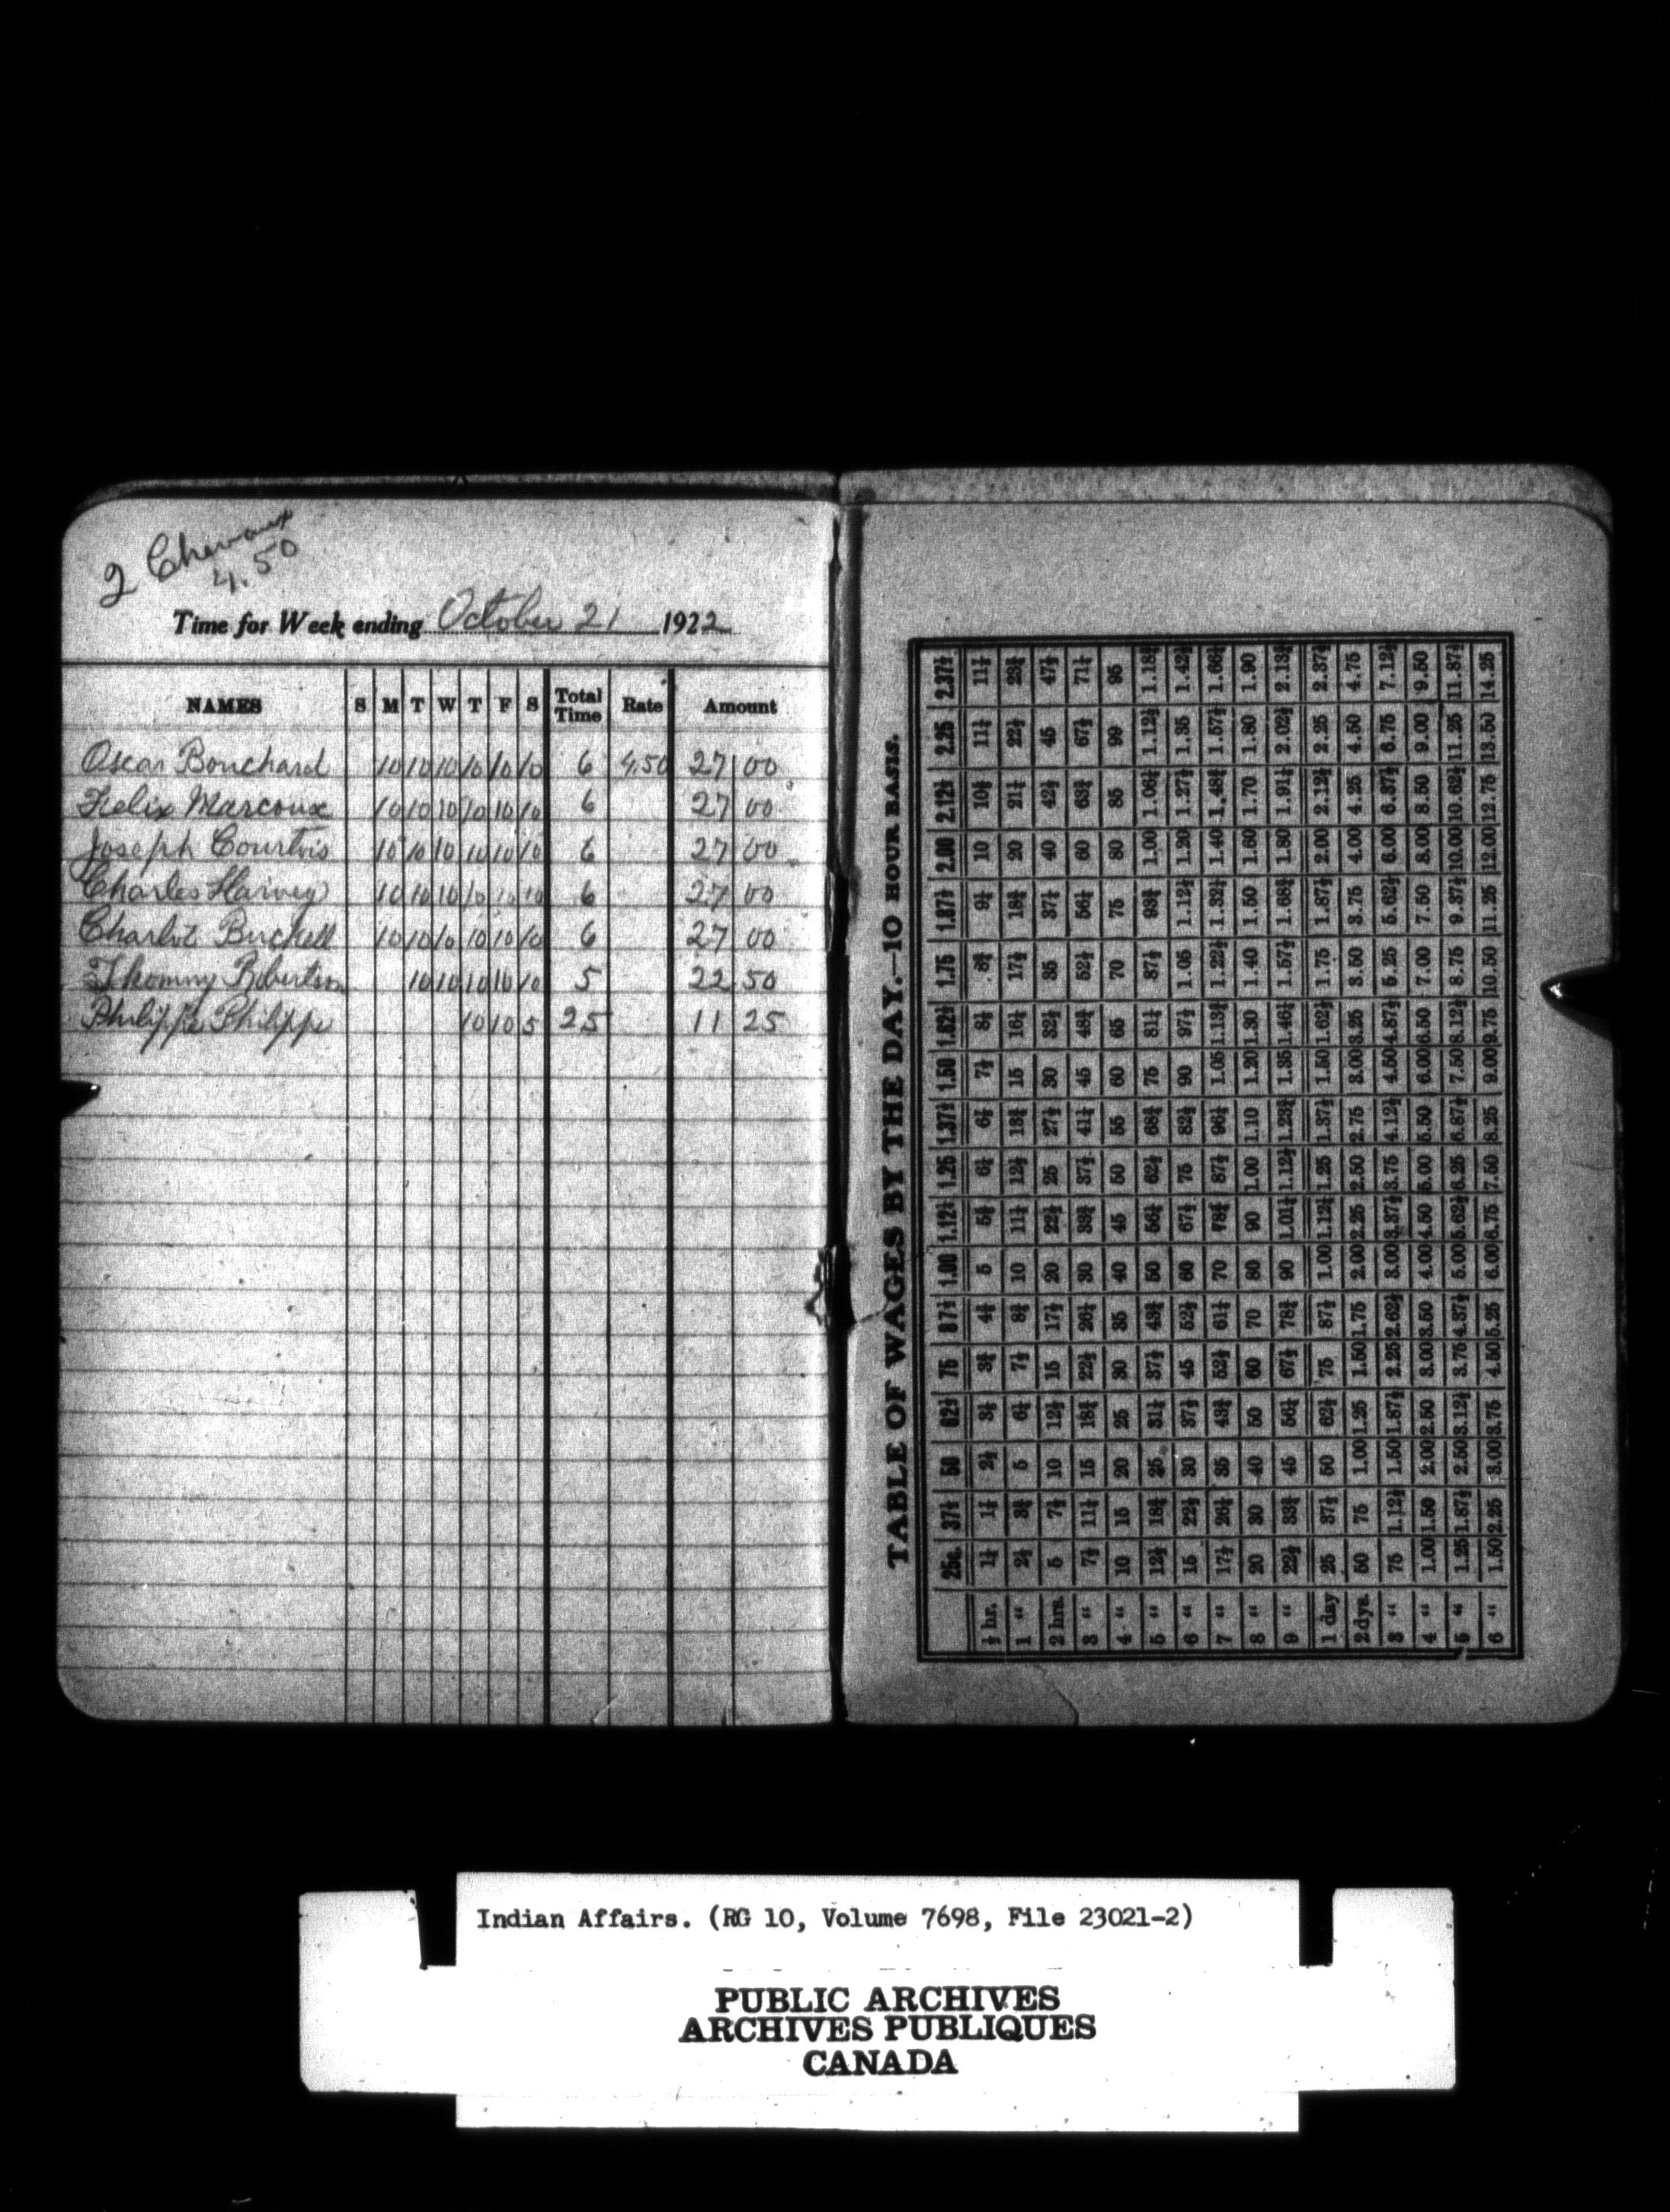 2 Chevaux
4.50
Time for Week ending October 21 1922
NAMES S M T W T F S Total Time Rate Amount
Oscar Bouchard 10 10 10 10 10 10 6 4.50 27 00
Felix Marcoux 10 10 10 10 10 10 6 27 00
Joseph Courtois 10 10 10 10 10 10 6 27 00
Charles Harvey 10 10 10 10 10 10 6 27 00
Charlot Buckell 10 10 10 10 10 10 6 27 00
Thommy Robertson 10 10 10 10 10 5 22 50
Philippe Philippe 10 10 5 25 11 25
TABLE OF WAGES BY THE DAY.—10 HOUR BASIS.
25c. 37½ 50 62½ 75 87½ 1.00 1.12½ 1.25 1.37½ 1.50 1.62½ 1.75 1.87½ 2.00 2.12½ 2.25 2.37½
½ hr. 1¼ 1¾ 2½ 3¼ 3¾ 4¼ 5 5½ 6¼ 6¾ 7½ 8¼ 8¾ 9¼ 10 10½ 11¼ 11¾
1 " 2½ 3¾ 5 6¼ 7½ 8¾ 10 11¼ 12½ 13¾ 15 16¼ 17½ 18¾ 20 21¼ 22½ 23¾
2 hrs. 5 7½ 10 12½ 15 17½ 20 22½ 25 27½ 30 32½ 35 37½ 40 42½ 45 47½
3 " 7½ 11¼ 15 18¾ 22½ 26¼ 30 33¾ 37½ 41¼ 45 48¾ 52½ 56¼ 60 63¾ 67½ 71¼
4 " 10 15 20 25 30 35 40 45 50 55 60 65 70 75 80 85 99 95
5 " 12½ 18¾ 25 31¼ 37½ 43¾ 50 56¼ 62½ 68¾ 75 81¼ 87½ 93¾ 1.00 1.06¼ 1.12½ 1.18¾
6 " 15 22½ 30 37½ 45 52½ 60 67½ 75 82½ 90 97½ 1.05 1.12½ 1.20 1.27½ 1.35 1.42½
7 " 17½ 26¼ 35 43¾ 52½ 61¼ 70 78¾ 87½ 96¼ 1.05 1.13¾ 1.22½ 1.32½ 1.40 1.48¾ 1.57½ 1.66¼
8 " 20 30 40 50 60 70 80 90 1.00 1.10 1.20 1.30 1.40 1.50 1.60 1.70 1.80 1.90
9 " 22½ 33¾ 45 56¼ 67½ 78¾ 90 1.01¼ 1.12½ 1.23¾ 1.35 1.46¼ 1.57½ 1.68¾ 1.80 1.91¼ 2.02½ 2.13¾
1 day 25 37½ 50 62½ 75 87½ 1.00 1.12½ 1.25 1.37½ 1.50 1.62½ 1.75 1.87½ 2.00 2.12½ 2.25 2.37½
2 dys. 50 75 1.00 1.25 1.50 1.75 2.00 2.25 2.50 2.75 3.00 3.25 3.50 3.75 4.00 4.25 4.50 4.75
3 " 75 1.12½ 1.50 1.87½ 2.25 2.62½ 3.00 3.37½ 3.75 4.12½ 4.50 4.87½ 5.25 5.62½ 6.00 6.37½ 6.75 7.12½
4 " 1.00 1.50 2.00 2.50 3.00 3.50 4.00 4.50 5.00 5.50 6.00 6.50 7.00 7.50 8.00 8.50 9.00 9.50
5 " 1.25 1.87½ 2.50 3.12½ 3.75 4.37½ 5.00 5.62½ 6.25 6.87½ 7.50 8.12½ 8.75 9.37½ 10.00 10.62½ 11.25 11.87½
6 " 1.50 2.25 3.00 3.75 4.50 5.25 6.00 6.75 7.50 8.25 9.00 9.75 10.50 11.25 12.00 12.75 13.50 14.25
Indian Affairs. (RG 10, Volume 7698, File 23021-2)
PUBLIC ARCHIVES
ARCHIVES PUBLIQUES
CANADA